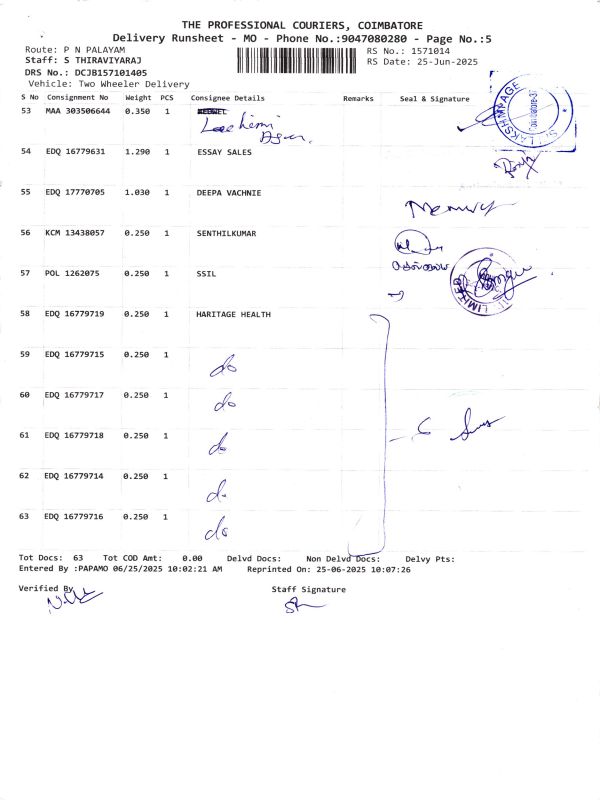 THE PROFESSIONAL COURIERS, COIMBATORE
Delivery Runsheet - MO - Phone No.:9047080280 - Page No.:5
Route: P N PALAYAM RS No.: 1571014
Staff: S THIRAVIYARAJ RS Date: 25-Jun-2025
DRS No.: DCJB157101405
Vehicle: Two Wheeler Delivery
S No Consignment No Weight PCS Consignee Details Remarks Seal & Signature
53 MAA 303506644 0.350 1
54 EDQ 16779631 1.290 1 ESSAY SALES
55 EDQ 17770705 1.030 1 DEEPA VACHNIE
56 KCM 13438057 0.250 1 SENTHILKUMAR
57 POL 1262075 0.250 1 SSIL
LIMITED
58 EDQ 16779719 0.250 1 HARITAGE HEALTH
59 EDQ 16779715 0.250 1 do
60 EDQ 16779717 0.250 1 do
61 EDQ 16779718 0.250 1 do
62 EDQ 16779714 0.250 1 do
63 EDQ 16779716 0.250 1 do
Tot Docs: 63 Tot COD Amt: 0.00 Delvd Docs: Non Delvd Docs: Delvy Pts:
Entered By :PAPAMO 06/25/2025 10:02:21 AM Reprinted On: 25-06-2025 10:07:26
Verified By Staff Signature